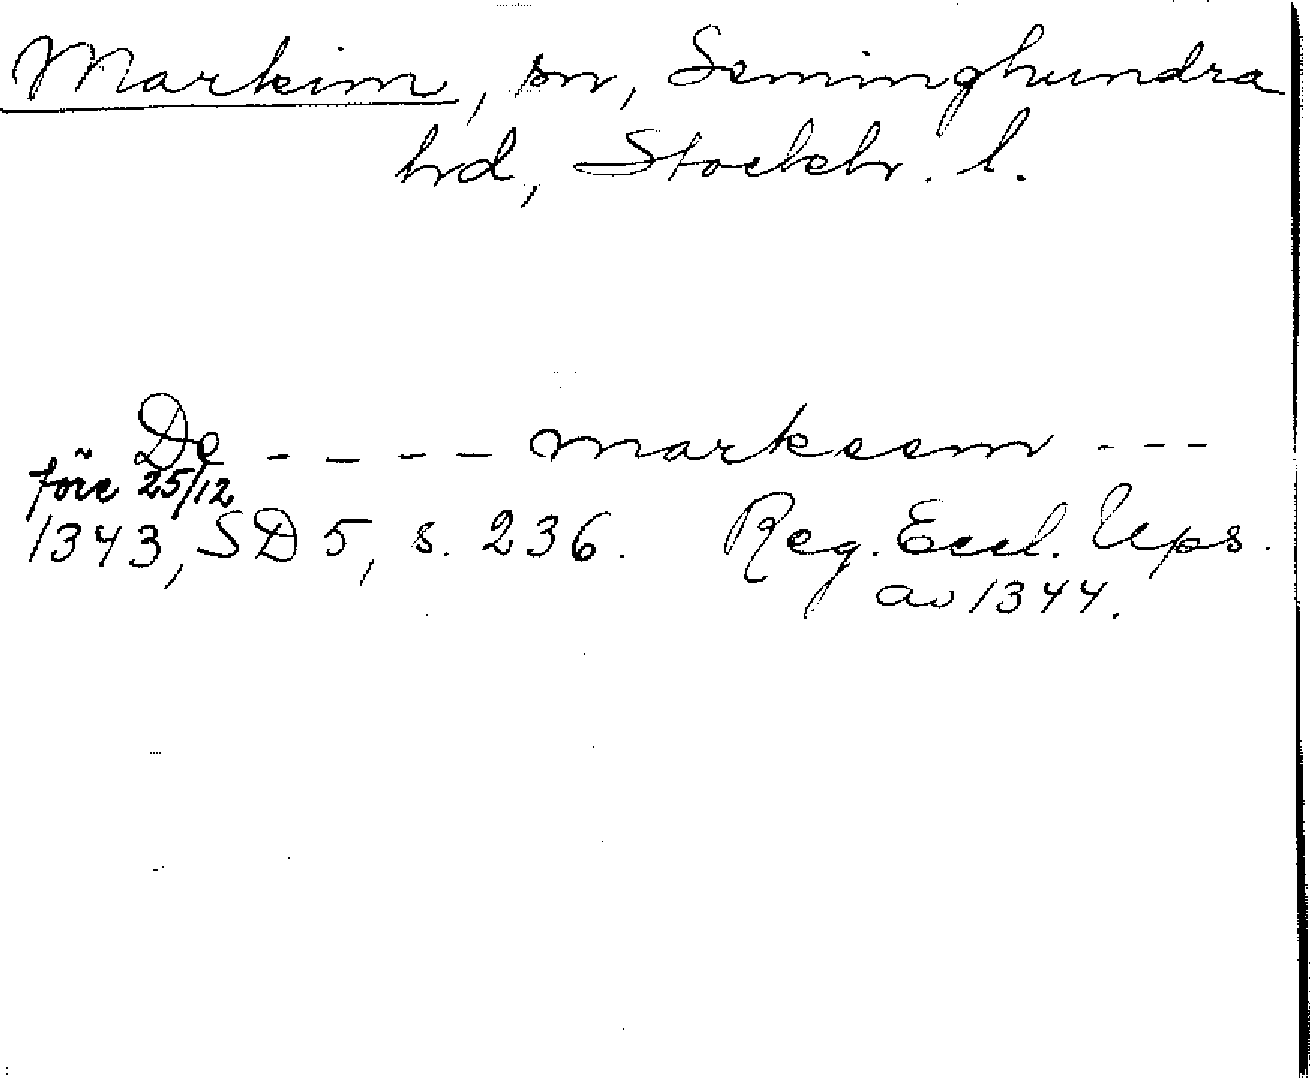 Markim, sn, Seminghundra
hrd, Stockh. l.
De - - - - markeem - - -
före 25/12
1343, SD 5, s. 236. Reg. Eccl. Ups.
av 1344.